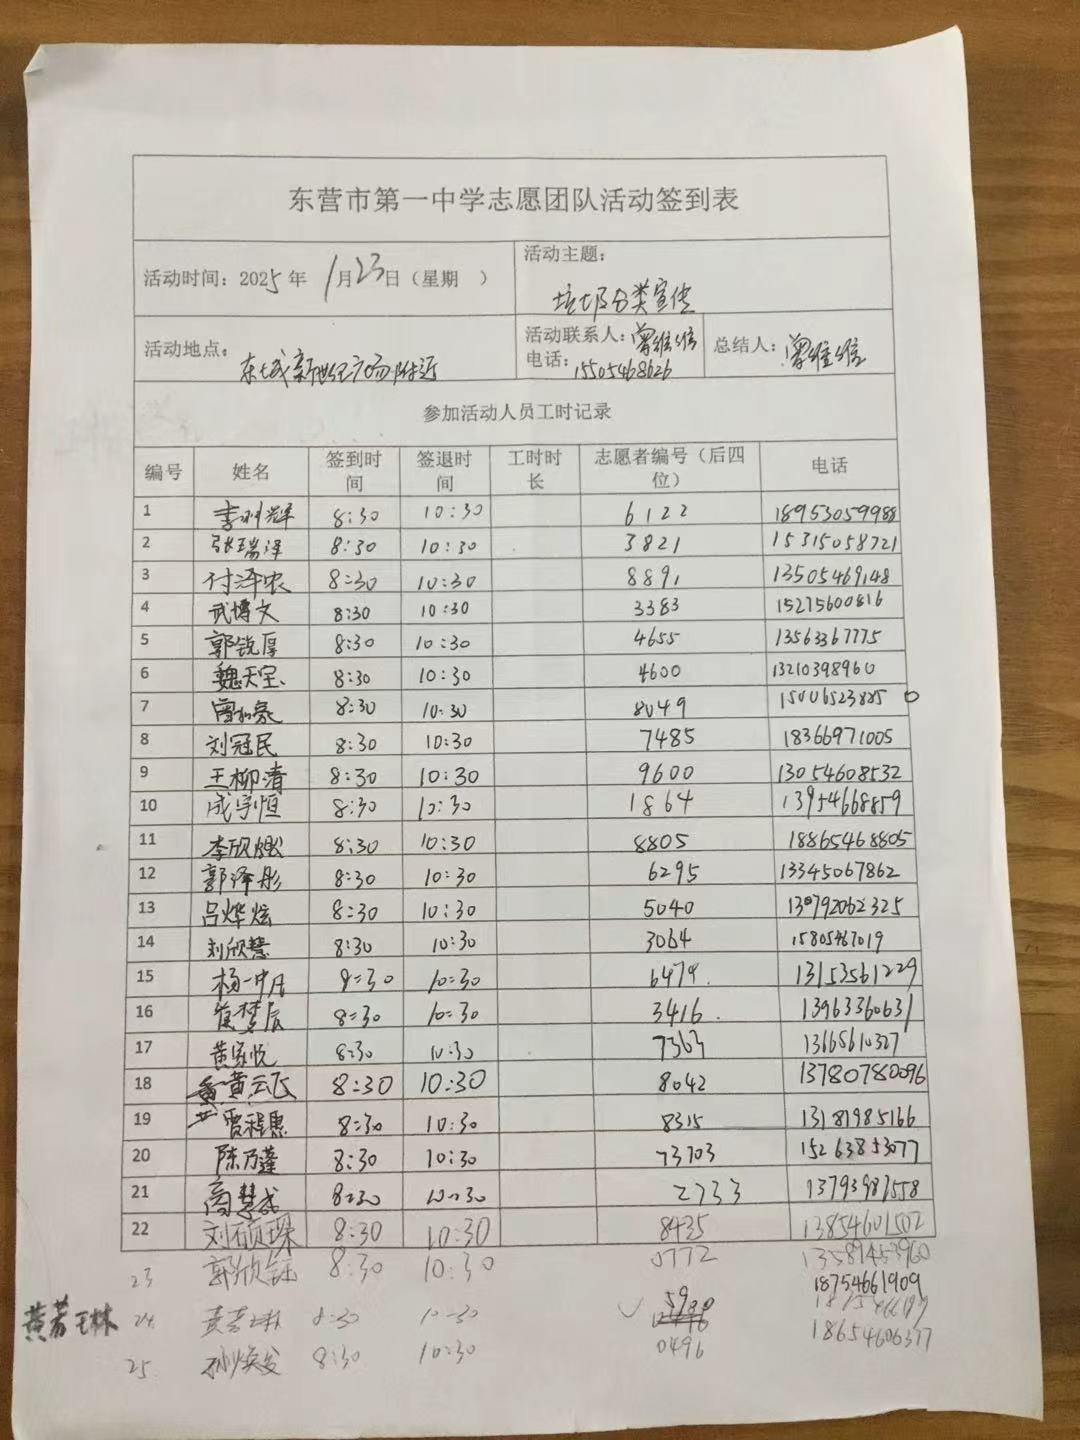 东营市第一中学志愿团队活动签到表
活动时间：2025年 1月23日（星期 ） 活动主题：垃圾分类宣传
活动地点：东城新世纪广场附近 活动联系人：曾维维 电话：15505468626 总结人：曾维维
参加活动人员工时记录
编号 姓名 签到时间 签退时间 工时时长 志愿者编号（后四位） 电话
1 8:30 10:30 6122 18953059988
2 张瑞泽 8:30 10:30 3821 15315058721
3 付泽农 8:30 10:30 8891 13505469148
4 武博文 8:30 10:30 3383 15275600816
5 郭锐厚 8:30 10:30 4655 13563367775
6 魏天宝 8:30 10:30 4600 13210398960
7 8:30 10:30 8049
8 刘冠民 8:30 10:30 7485 18366971005
9 王柳清 8:30 10:30 9600 13054608532
10 成宇恒 8:30 10:30 1864 13954668859
11 李欣燃 8:30 10:30 8805 18865468805
12 郭泽彤 8:30 10:30 6295 13345067862
13 吕烨炫 8:30 10:30 5040
14 刘欣慧 8:30 10:30 3064 15805467019
15 8:30 10:30 6479 13153561229
16 崔梦辰 8:30 10:30 3416 13963360631
17 黄家悦 8:30 10:30 7363 13665610327
18 黄云飞 8:30 10:30 8042 13780780096
19 贾程惠 8:30 10:30 8315 13181985166
20 陈乃蓬 8:30 10:30 73703 15263853077
21 8:30 10:30 2733 13793987558
22 刘硕琛 8:30 10:30 8435 13854601502
23 郭欣钰 8:30 10:30 0772 13589453960
黄若琳 24 黄若琳 8:30 10:30 5980 18754661909
25 孙焕发 8:30 10:30 0496 18654606377